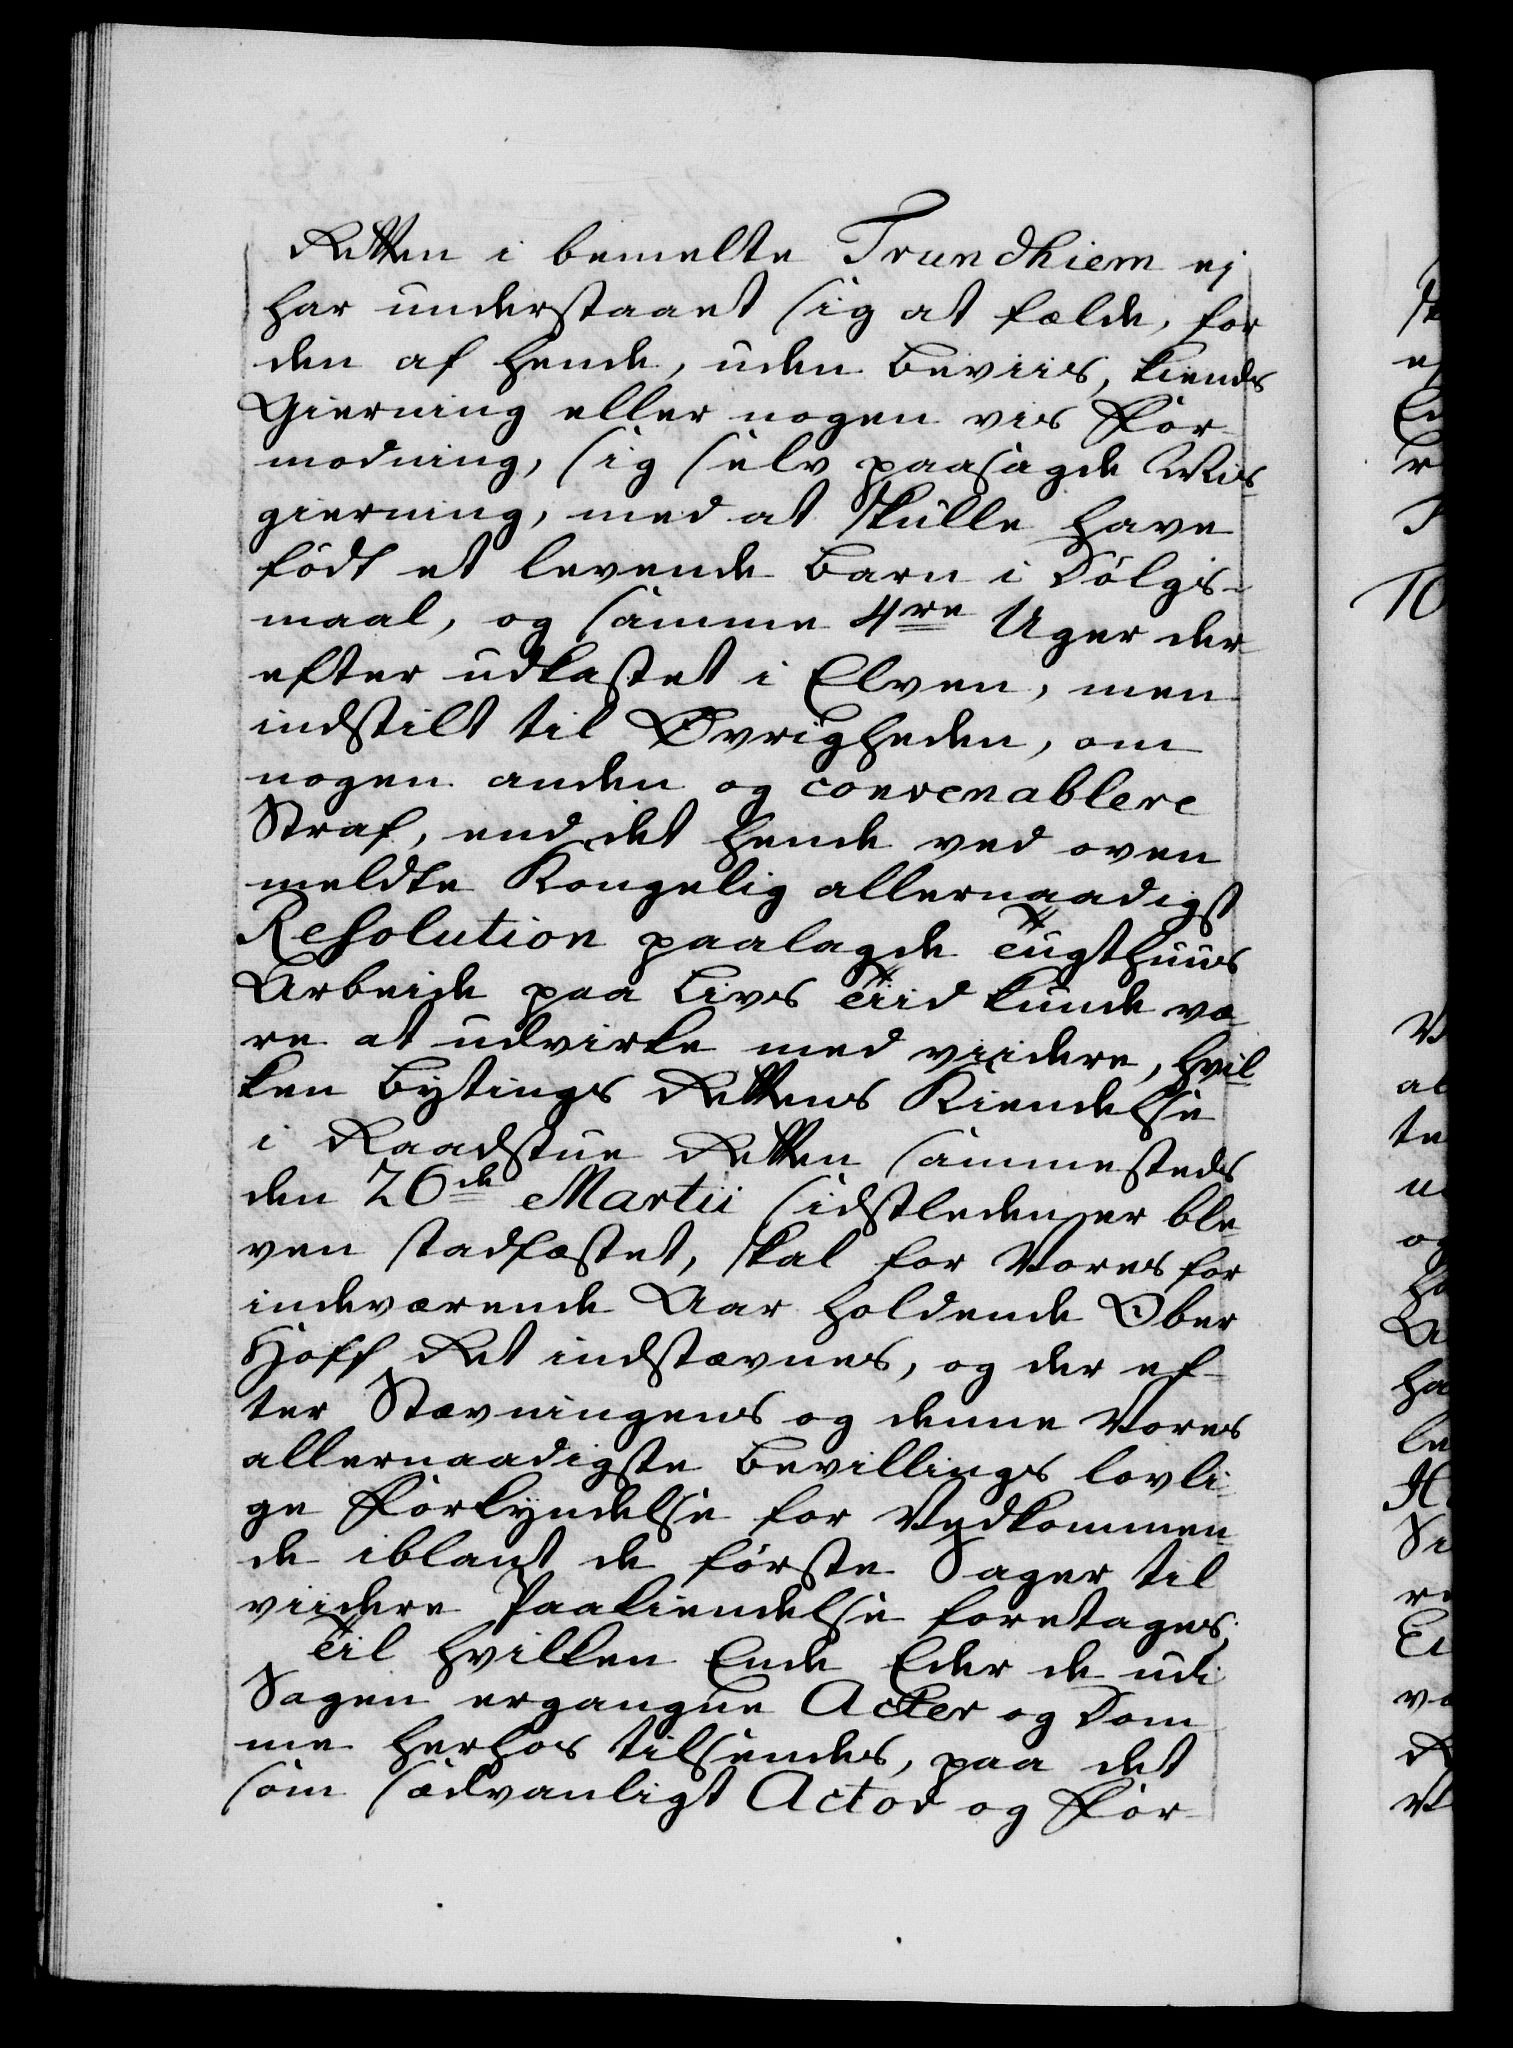 Retten i bemelte Trundhiem ej
har understaaet sig at fælde, for
den af hende, uden Beviis, kiends
Gierning eller nogen vis For-
modning, sig selv paasagde Mis-
gierning, med at skulle have
födt et levende Barn i Dölgs-
maal, og samme 4re Uger der
efter udkastet i Elven, men
indstilt til Øvrigheden, om
nogen anden og convenablere
Straf, end det hende ved oven
meldte Kongelig allernaadigst
Resolution paalagde Tugthuus
Arbeide paa Livs Tiid kunde væ
re at udvirke med viidere, hvil-
ken Bytings Rettens Kiendelse
i Raadstue Retten sammesteds
den 26de Martii sidstleden er ble
ven stadfæstet, skal for Vores for
indeværende Aar holdende Ober
Hoff Ret indstævnes, og der ef-
ter Stævningens og denne Vores
allernaadigste Bevillings lovli-
ge Forkyndelse for Vedkommen-
de iblant de förste Sager til
viidere Paakiendelse foretages;
Til hvilken Ende Eder de udi
Sagen ergangne Acter og Dom
me herhos tilsendes, paa det
som sædvanligt Actor og For-